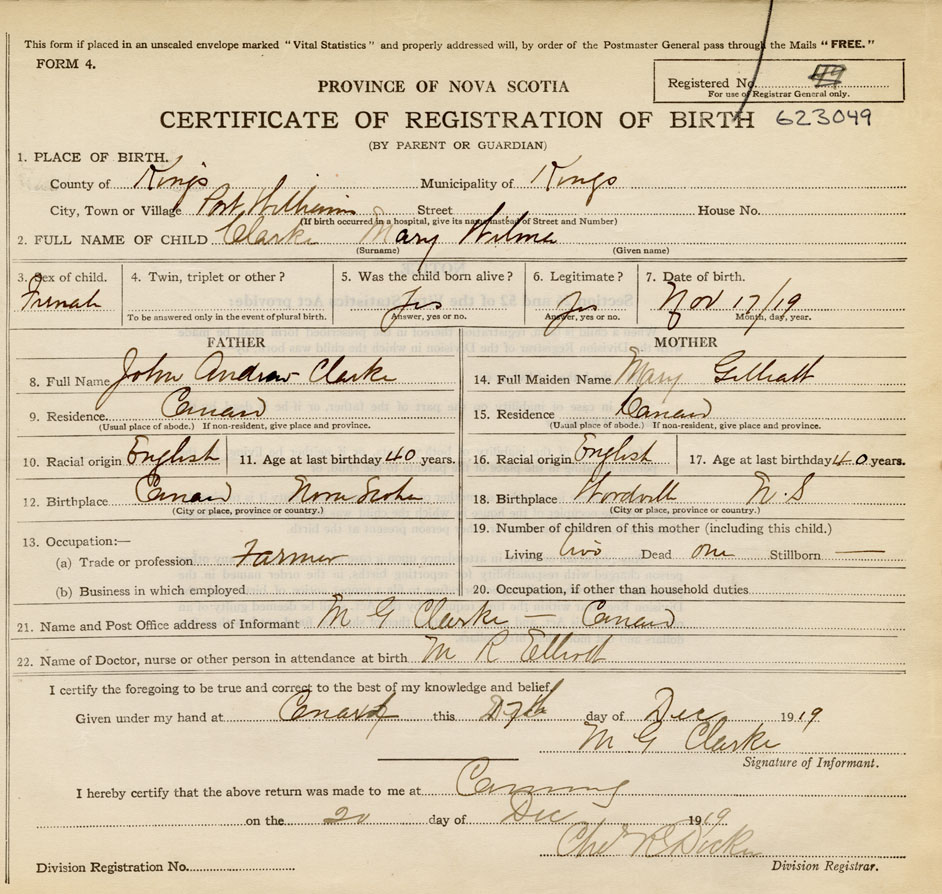 This form if placed in an unsealed envelope marked "Vital Statistics" and properly addressed will, by order of the Postmaster General pass through the Mails "FREE."
FORM 4.
Registered No. 49
For use of Registrar General only.
PROVINCE OF NOVA SCOTIA
CERTIFICATE OF REGISTRATION OF BIRTH 623049
(BY PARENT OR GUARDIAN)
1. PLACE OF BIRTH.
County of Kings Municipality of Kings
City, Town or Village Port Williams Street House No.
(If birth occurred in a hospital, give its name instead of Street and Number)
2. FULL NAME OF CHILD Clarke Mary Wilma
(Surname) (Given name)
3. Sex of child. 4. Twin, triplet or other? 5. Was the child born alive? 6. Legitimate? 7. Date of birth.
Female Yes Yes Nov 17/19
To be answered only in the event of plural birth. Answer, yes or no. Answer, yes or no. Month, day, year.
FATHER MOTHER
8. Full Name John Andrew Clarke 14. Full Maiden Name Mary Gilliatt
9. Residence Canard 15. Residence Canard
(Usual place of abode.) If non-resident, give place and province. (Usual place of abode.) If non-resident, give place and province.
10. Racial origin English 11. Age at last birthday 40 years. 16. Racial origin English 17. Age at last birthday 40 years.
12. Birthplace Canard Nova Scotia 18. Birthplace N.S
(City or place, province or country.) (City or place, province or country.)
13. Occupation:— 19. Number of children of this mother (including this child.)
(a) Trade or profession Farmer Living two Dead one Stillborn —
(b) Business in which employed 20. Occupation, if other than household duties
21. Name and Post Office address of Informant M G Clarke — Canard
22. Name of Doctor, nurse or other person in attendance at birth M R Elliott
I certify the foregoing to be true and correct to the best of my knowledge and belief.
Given under my hand at Canard this day of Dec 1919
M G Clarke
Signature of Informant.
I hereby certify that the above return was made to me at Canning
on the 20 day of Dec 1919
Division Registration No. Division Registrar.